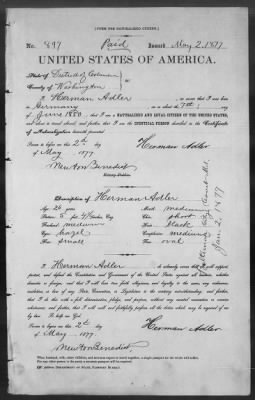 [FORM FOR NATURALIZED CITIZEN.]
No. 7697 Paid Issued May 2, 1877
UNITED STATES OF AMERICA.
State of District of Columbia
County of Washington
I, Herman Adler, do swear that I was born
in Germany, on or about the 7th day
of June 1850; that I am a NATURALIZED AND LOYAL CITIZEN OF THE UNITED STATES,
and about to travel abroad; and further, that I am the IDENTICAL PERSON described in the Certificate
of Naturalization herewith presented.
Sworn to before me this 2d
day of May 1877.
Herman Adler
Newton Benedict
Notary Public.
Description of Herman Adler
Age: 26 years
Mouth: medium
Stature: 5 feet
Chin: short
Forehead: medium
Hair: black
Eyes: hazel
Complexion: medium
Nose: small
Face: oval
Jan. 2. 1877
I, Herman Adler, do solemnly swear that I will support,
protect, and defend the Constitution and Government of the United States against all enemies, whether
domestic or foreign; and that I will bear true faith, allegiance, and loyalty to the same, any ordinance,
resolution, or law of any State, Convention, or Legislature to the contrary notwithstanding; and further,
that I do this with a full determination, pledge, and purpose, without any mental reservation or evasion
whatsoever; and further, that I will well and faithfully perform all the duties which may be required of me
by law. So help me God.
Sworn to before me this 2d
day of May 1877
Herman Adler
Newton Benedict,
Notary Public.